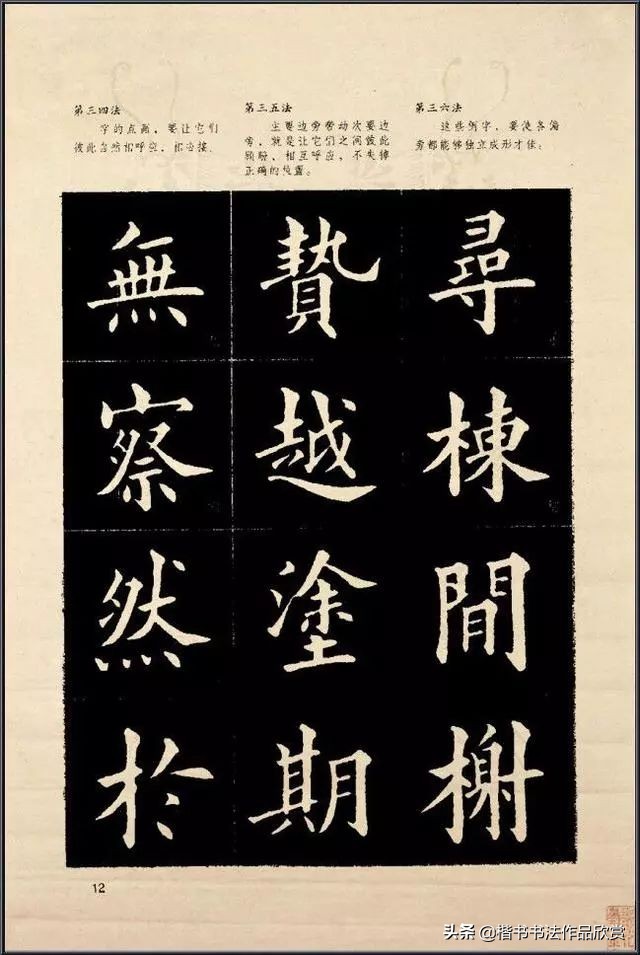 第三四法
字的点画，要让它们
彼此自然相呼应，相连接。
無
察
然
於
第三五法
主要边旁带动次要边
旁，就是让它们之间彼此
顾盼、相互呼应，不失掉
正确的位置。
贄
越
塗
期
第三六法
这些例字，要使各偏
旁都能够独立成形才佳。
尋
棟
閒
榭
12
头条 @楷书书法作品欣赏